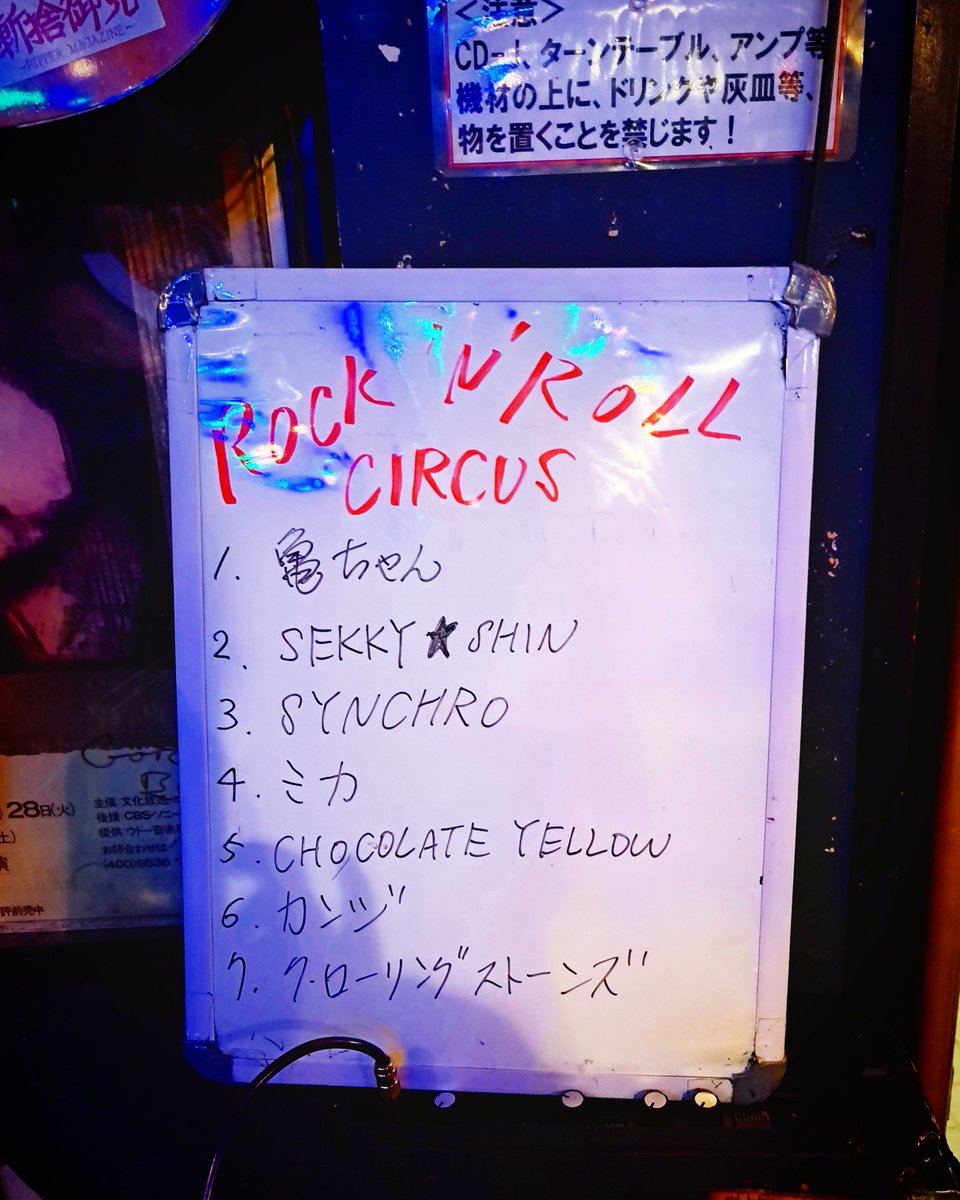 斬捨御免
-RIPPER MAGAZINE-
<注意>
CD-J、ターンテーブル、アンプ等
機材の上に、ドリンクや灰皿等、
物を置くことを禁じます!
ROCK 'N' ROLL
CIRCUS
1. 亀ちゃん
2. SEKKY★SHIN
3. SYNCHRO
4. ミカ
5. CHOCOLATE YELLOW
6. カンジ
7. ク・ローリングストーンズ
28日(火)
主催 文化放送
後援 CBS・ソニー
提供 ウドー音楽
お問合わせは
(400)6536
前売中